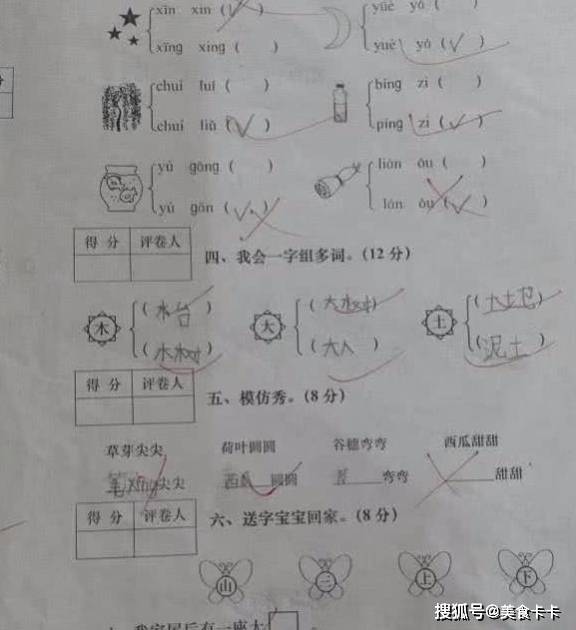 xīn xin (√)
yuè yá ( )
xīng xing ( )
yuè yá (√)
chuí fuǐ ( )
bíng zi ( )
chuí liǔ (√)
píng zi (√)
yú gōng ( )
lián ǒu ( )
yú gān (√)
lán ǒu (√)
得分 评卷人
四、我会一字组多词。(12分)
木 (木台) 大 (大水村) 土 (土地)
(木树) (大人) (泥土)
得分 评卷人
五、模仿秀。(8分)
草芽尖尖 荷叶圆圆 谷穗弯弯 西瓜甜甜
笔xīng尖尖 西瓜圆圆 弯弯 甜甜
得分 评卷人
六、送字宝宝回家。(8分)
山 三 上 下
我家屋后有一座大
搜狐号@美食卡卡